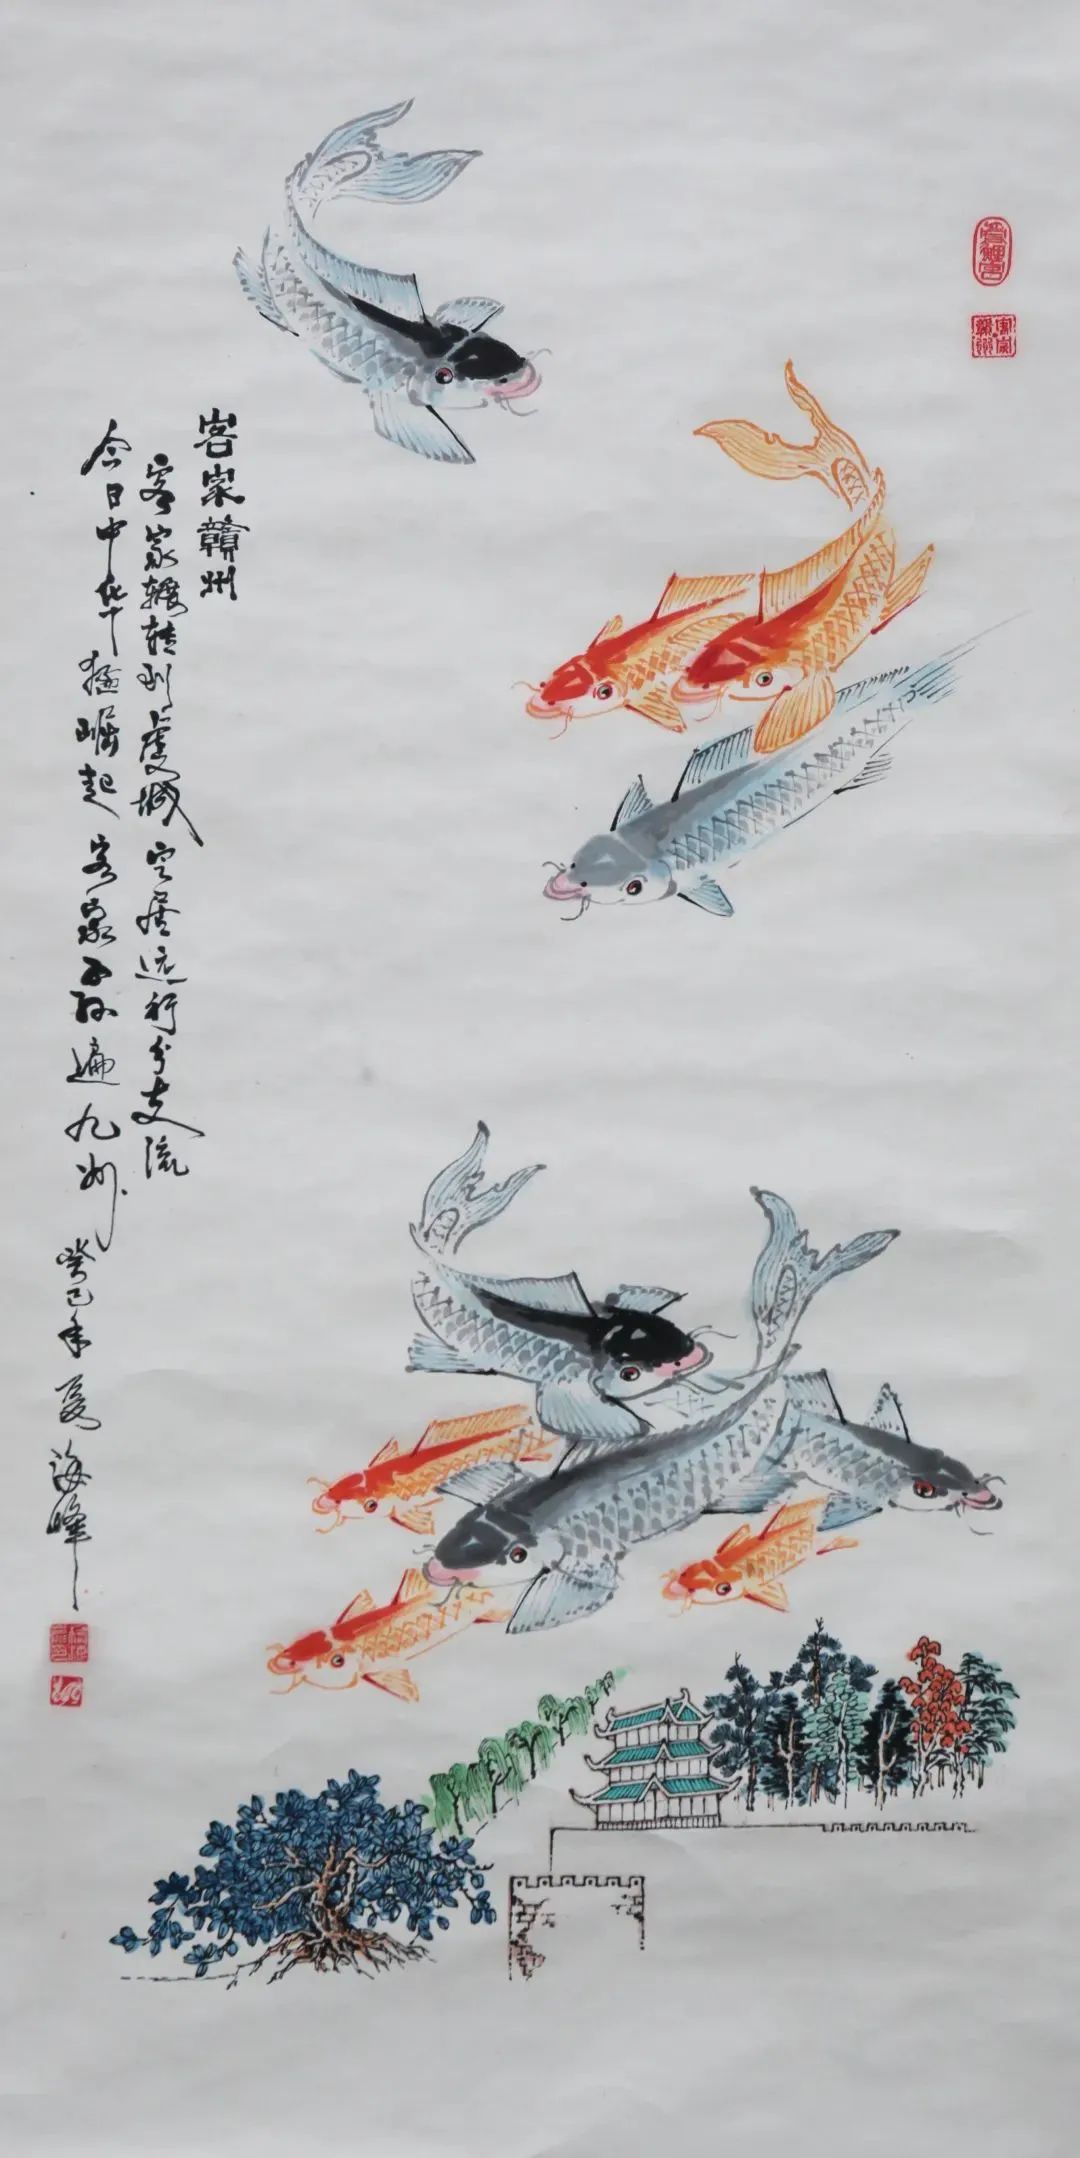 客家贛州
客家辗转到虔城定居远行分支流
今日中华猛崛起客家子孙遍九州癸巳年夏海峰